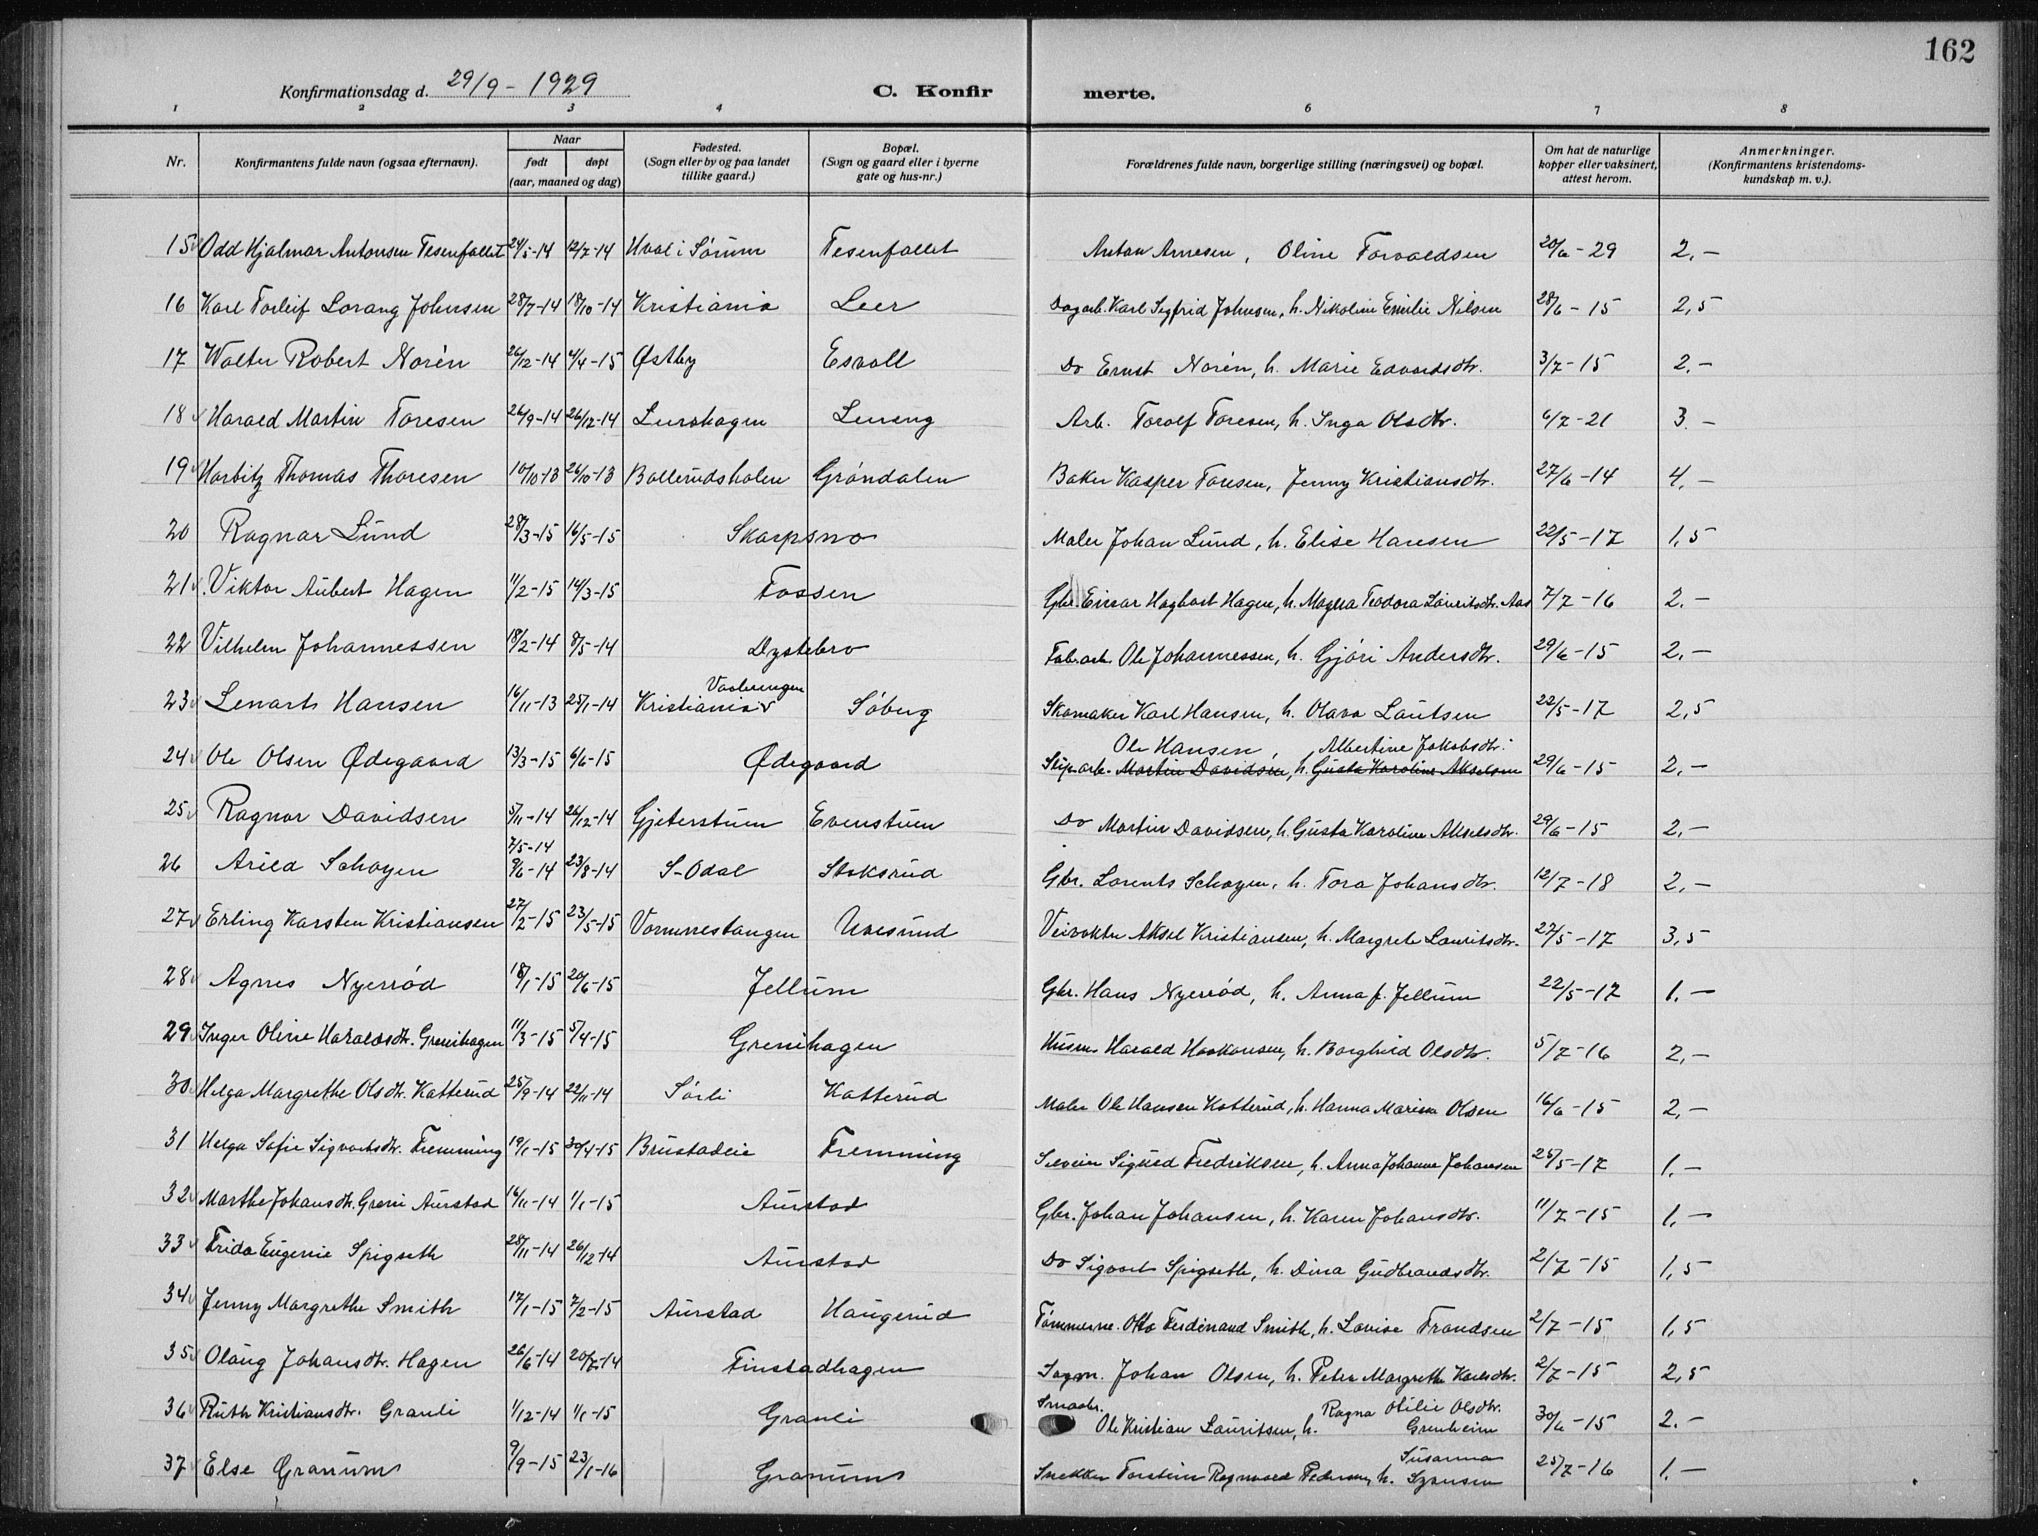 162
Konfirmationsdag d. 29/9 - 1929 C. Konfir merte.
1 2 3 4 6 7 8
Nr. Konfirmantens fulde navn (ogsaa efternavn). Naar født døpt (aar, maaned og dag) Fødested. (Sogn eller by og paa landet tillike gaard.) Bopæl. (Sogn og gaard eller i byerne gate og hus-nr.) Forældrenes fulde navn, borgerlige stilling (næringsvei) og bopæl. Om hat de naturlige kopper eller vaksinert, attest herom. Anmerkninger. (Konfirmantens kristendomskundskap m. v.).
15 Odd Hjalmar Antonsen Tesenfallet 24/5-14 12/7-14 Hval i Sørum Tesenfallet Anton Arnesen, Oline Torvaldsen 20/6-29 2,-
16 Karl Torleif Lorang Johnsen 28/7-14 18/10-14 Kristiania Leer Dagarb. Karl Sigfrid Johnsen, h. Nikoline Emilie Nilsen 28/6-15 2,5
17 Walter Robert Norén 26/12-14 4/4-15 Østby Esvall Do Ernst Norén, h. Marie Edvardsdtr. 3/7-15 2.-
18 Harald Martin Toresen 26/9-14 26/12-14 Leirshagen Leireng Arb. Torolf Toresen, h. Inga Olsdtr. 6/7-21 3.-
19 Harbitz Thomas Thoresen 10/10-13 26/10-13 Bollerudsholen Grøndalen Baker Kasper Toresen, Jenny Kristiansdtr. 27/6-14 4,-
20 Ragnar Lund 28/3-15 16/5-15 Skarpsno Maler Johan Lund, h. Elise Hansen 22/5-17 1,5
21 Viktor Aubert Hagen 11/2-15 14/3-15 Fossen Gbr. Einar Hagbart Hagen, h. Magna Teodora Lauritsdtr. Aas 7/7-16 2.-
22 Vilhelm Johannessen 18/2-14 8/5-14 Dystebro Fab.arb. Ole Johannessen, h. Gjøri Andersdtr. 29/6-15 2,-
23 Lenart Hansen 16/11-13 25/1-14 Kristiania Vaalerengen Søberg Skomaker Karl Hansen, h. Olava Lautsen 22/5-17 2,5
24 Ole Olsen Ødegaard 13/3-15 6/6-15 Ødegaard Ole Hansen, Albertine Jakobsdtr. Slip.arb. Martin Davidsen, h. Gusta Karoline Akselsen 29/6-15 2,-
25 Ragnar Davidsen 5/11-14 26/12-14 Gjeterstuen Evenstuen Do Martin Davidsen, h. Gusta Karoline Akselsdtr. 29/6-15 2,-
26 Arild Schøyen 7/5-14 9/6-14 23/8-14 S-Odal Stoksrud Gbr. Lorents Schøyen, h. Tora Johansdtr. 12/7-18 2,-
27 Erling Karsten Kristiansen 27/2-15 23/5-15 Vormnestangen Uvesund Veivokter Aksel Kristiansen, h. Margrete Lauritsdtr. 27/5-17 3,5
28 Agnes Nyerrød 18/1-15 20/6-15 Jellum Gbr. Hans Nyerrød, h. Anna f. Jellum 22/5-17 1.-
29 Inger Oline Haraldsdtr. Grenihagen 11/3-15 5/4-15 Grenihagen Husm. Harald Haakonsen, h. Borghild Olsdtr. 5/7-16 2,-
30 Helga Margrethe Olsdtr. Katterud 25/9-14 22/11-14 Sørli Katterud Maler Ole Hansen Katterud, h. Hanna Marina Olsen 16/6-15 2,-
31 Helga Sofie Sigvartsdtr. Fremming 19/1-15 30/4-15 Brustadeie Fremming Sigurd Fredriksen, h. Anna Johanne Johansen 25/5-17 1,-
32 Marthe Johansdtr. Greni Aurstad 16/11-14 1/1-15 Aurstad Gbr. Johan Johansen, h. Karen Johansdtr. 11/7-15 1,-
33 Frida Eugenie Spigseth 28/11-14 26/12-14 Aurstad Do Sigvart Spigseth, h. Dina Gudbrandsdtr. 2/7-15 1,5
34 Jenny Margrethe Smith 17/1-15 7/2-15 Aurstad Haugerud Tømmerm. Otto Ferdinand Smith, h. Lovise Frandsen 2/7-15 1,5
35 Olaug Johansdtr. Hagen 26/6-14 20/7-14 Finstadhagen Sagm. Johan Olsen, h. Petra Margrethe Karlsdtr. 2/7-15 2,5
36 Ruth Kristiansdtr. Granli 1/12-14 1/1-15 Granli Smaabr. Ole Kristian Lauritsen, h. Ragna Otilie Olsdtr. Grenheim 30/6-15 2.-
37 Else Granum 9/9-15 23/1-16 Granum Snekker Torstein Ragnvald Pedersen, h. Susanna 25/7-16 1.-